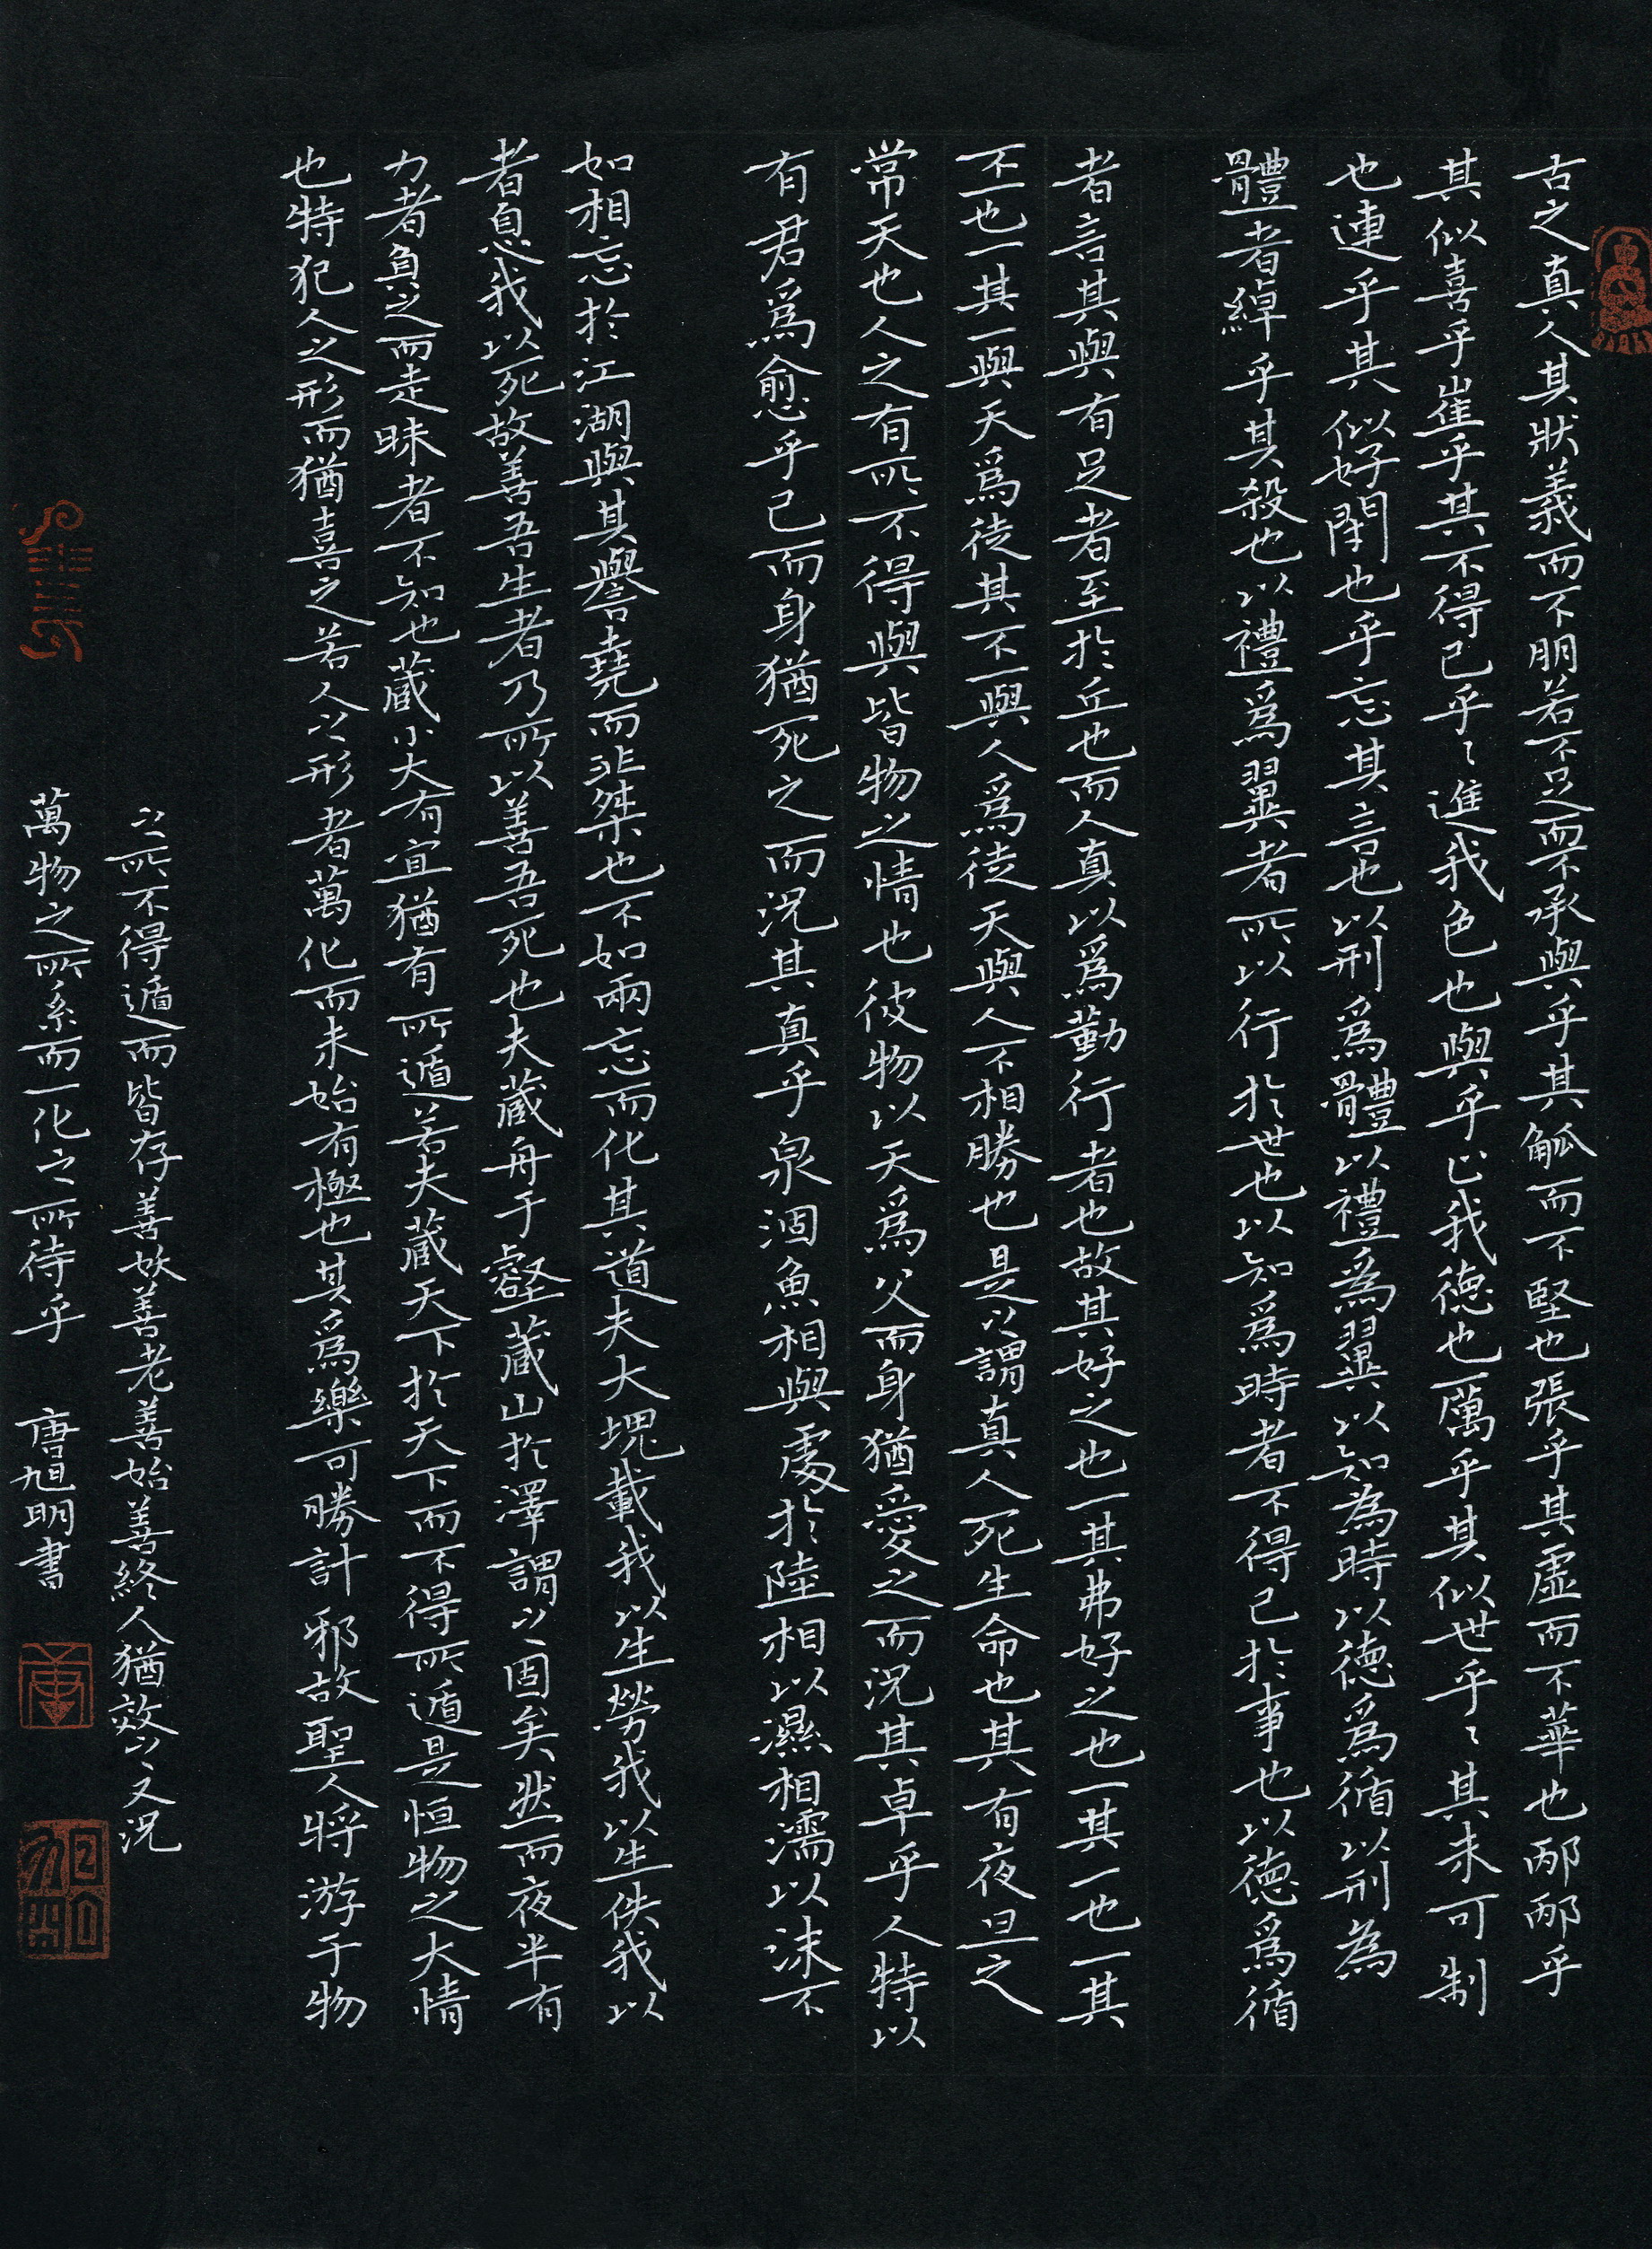 古之真人其狀義而不朋若不足而不承與乎其觚而不堅也張乎其虛而不華也邴邴乎
其似喜乎崔乎其不得已乎〻進我色也與乎止我德也厲乎其似世乎〻其未可制
也連乎其似好閉也乎忘其言也以刑為體以禮為翼以知為時以德為循以刑為
體者綽乎其殺也以禮為翼者所以行於世也以知為時者不得已於事也以德為循
者言其與有足者至於丘也而人真以為勤行者也故其好之也一其弗好之也一其一也一其
不一也一其一與天為徒其不一與人為徒天與人不相勝也是以謂真人死生命也其有夜旦之
常天也人之有所不得與皆物之情也彼物以天為父而身猶愛之而況其卓乎人特以
有君為愈乎己而身猶死之而況其真乎泉涸魚相與處於陸相以濕相濡以沫不
如相忘於江湖與其譽堯而非桀也不如兩忘而化其道夫大塊載我以生勞我以生佚我以
者息我以死故善吾生者乃所以善吾死也夫藏舟于壑藏山於澤謂之固矣然而夜半有
力者負之而走昧者不知也藏小大有宜猶有所遁若夫藏天下於天下而不得所遁是恒物之大情
也特犯人之形而猶喜之若人之形者萬化而未始有極也其為樂可勝計邪故聖人將游于物
之所不得遁而皆存善妖善老善始善終人猶效之又況
萬物之所系而一化之所待乎 唐旭明書